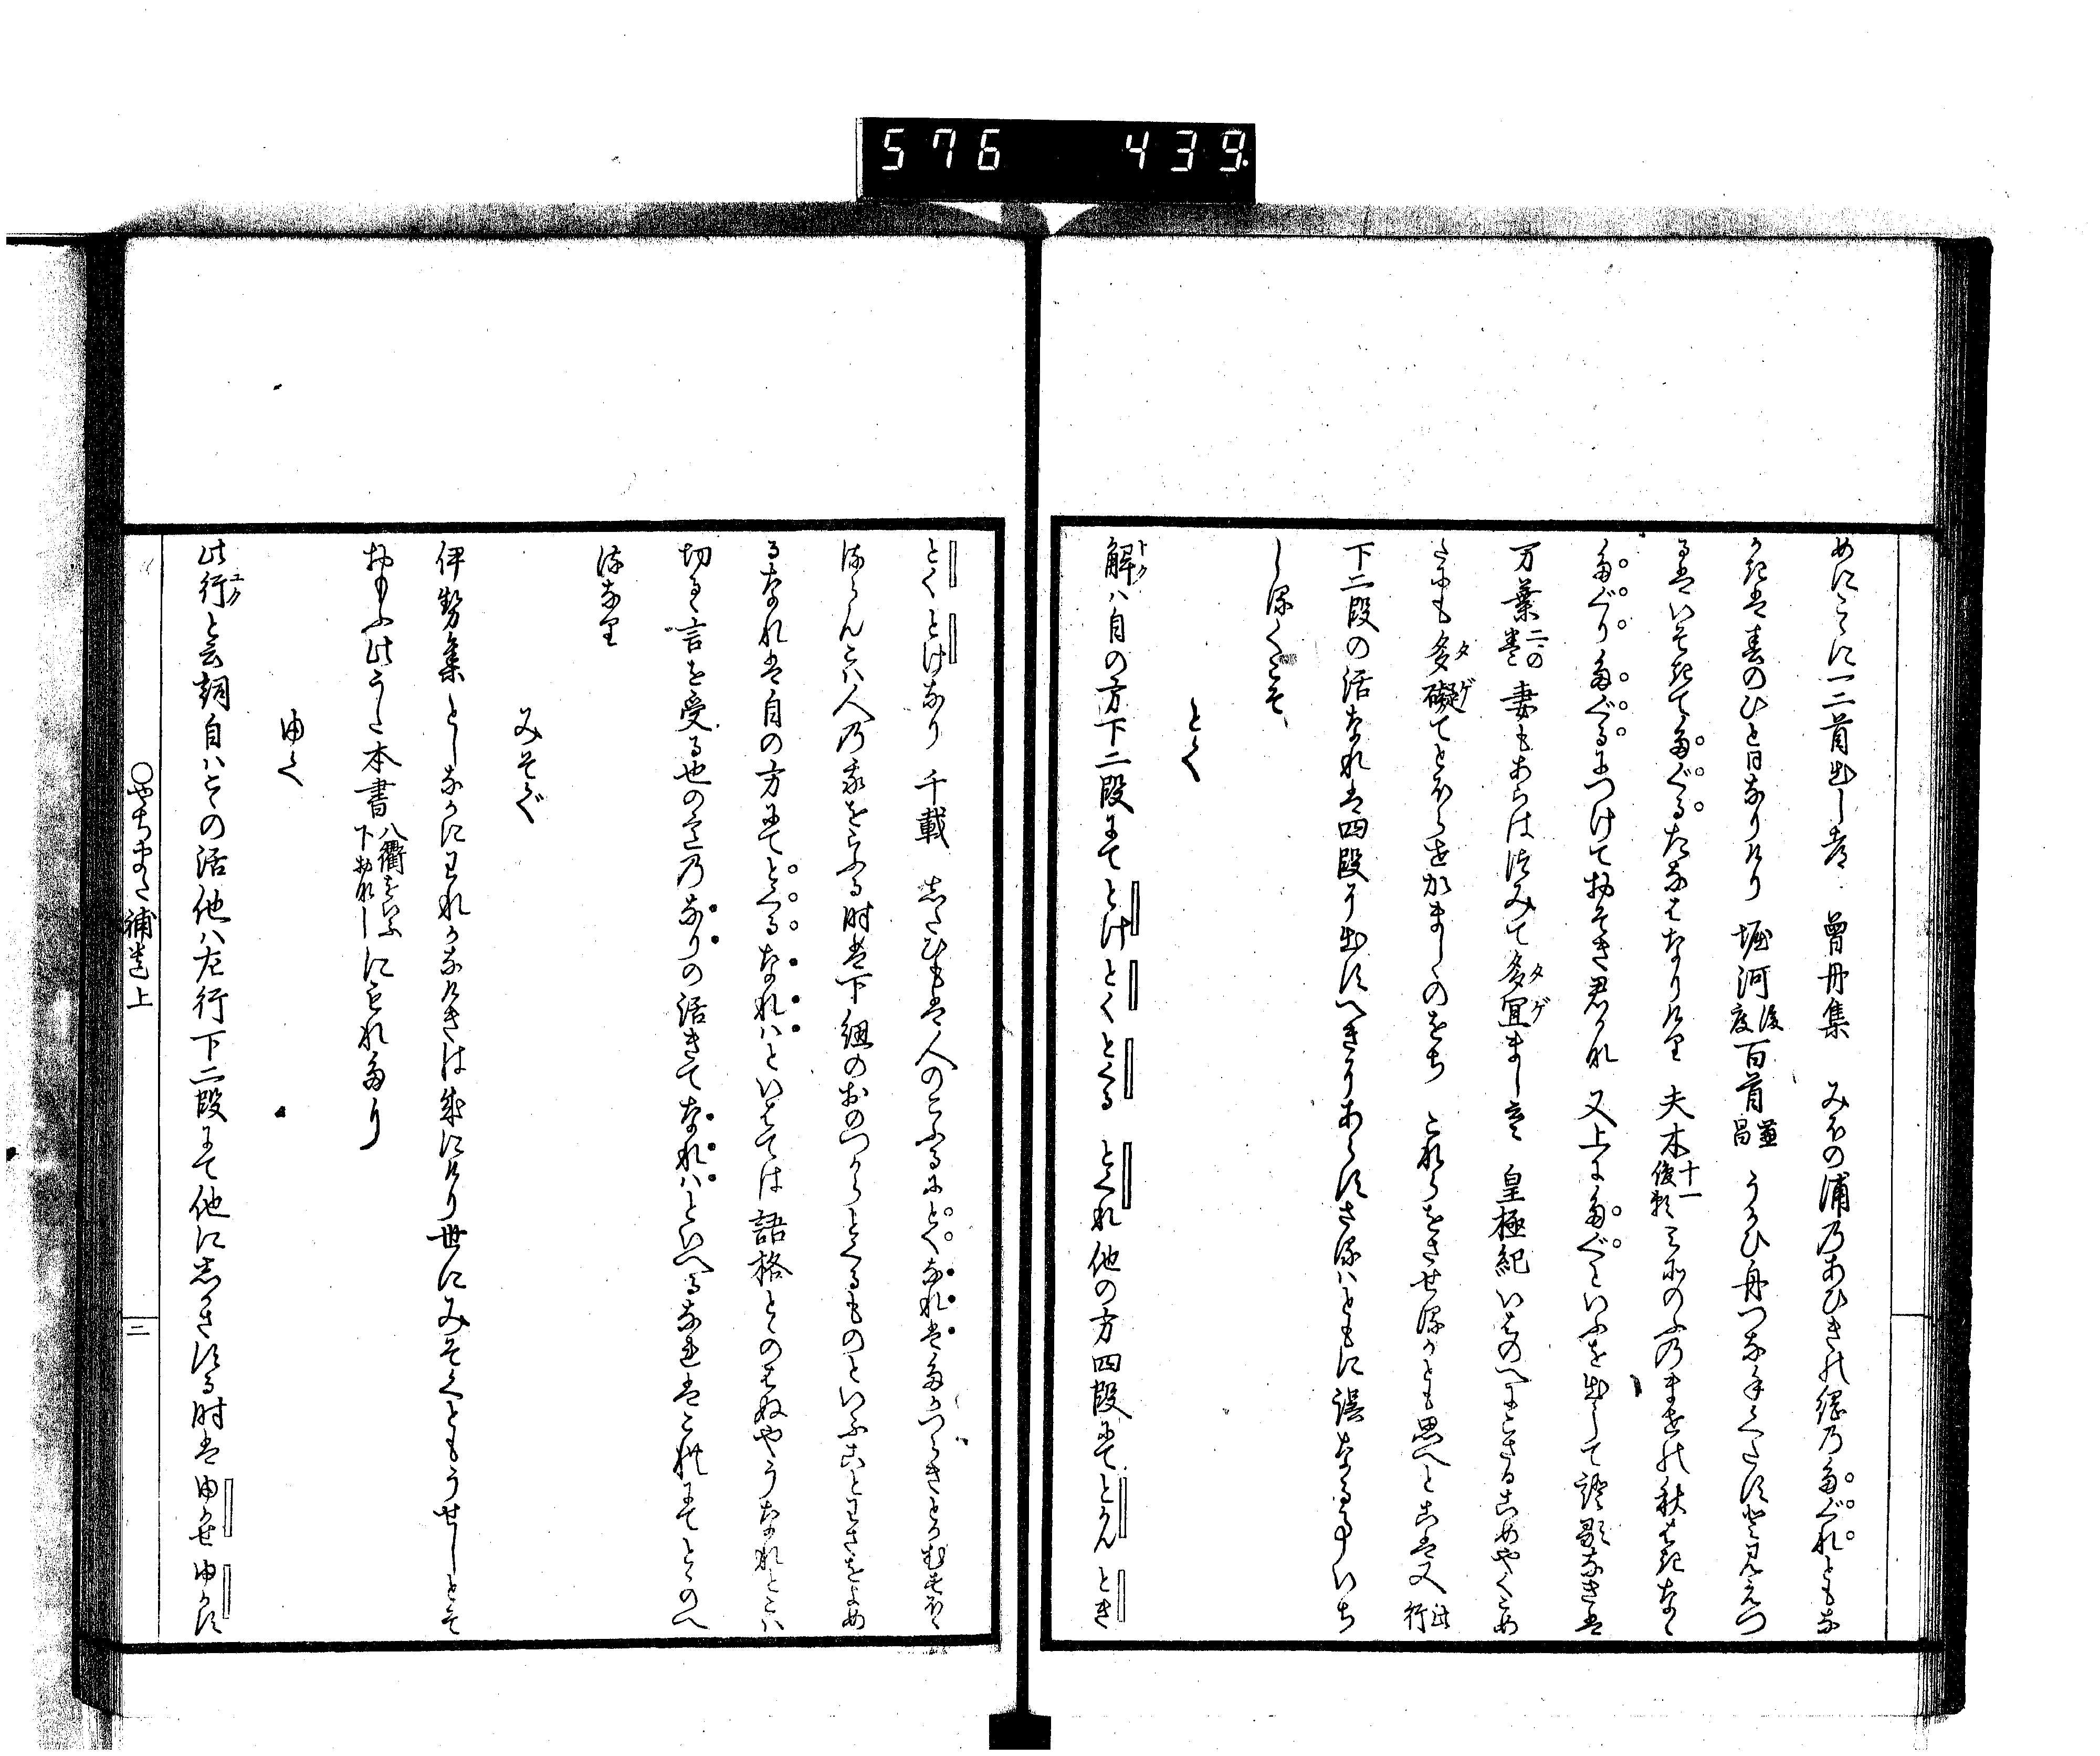 576 439
めにこゝに一二首出し芳 曾丹集 みほの浦乃あひきの縄乃たぐれともな
かきは春のひと日なりけり 堀河後度百首兼昌 うかひ舟つな手くたす
るはいそきてたぐるたなはなりけり 夫木十一俊頼 のふ乃ま の秋はきなく
たぐりたぐるにつけておそき君かな 又上にたぐといふを出して證歌なきは
万葉二の巻 妻もあらは採みて多宜まし云 皇極紀 いはのへにこさるこめやくこめ
たにも多礙てとほらせかましゝのをち これらをさせるかとも思へとこは又此行
下二段の活なれは四段に出すへきにあらすさるはともに誤なる事いち
しるくこそ
とく
解ハ自の方下二段にて とけ とく とくる とくれ 他の方四段にて とかん とき
とく とけなり 千載 したひも は人のこふるにとくなれはたかつらきとかむすほゝ
るらんこハ人乃我をこふる時は下紐のおのつからとくるものといふことわさをよめ
るなれは自の方にてとくるなれハといはては語格とゝのはぬやうなれとこハ
切る言を受る也の意乃なりの活きてなれハといへるなれはこれにてとゝのへ
るなり
みそぐ
伊勢集 としなかにわれかなけきは成にけり世にみそくともうせしとそ
おもふ此うた本書八衢をいふ下おなしにもれたり
ゆく
此行と云詞自ハこの活他ハ左行下二段にて他にしかさする時は ゆかせ ゆかす
○やちまた補遺上
三